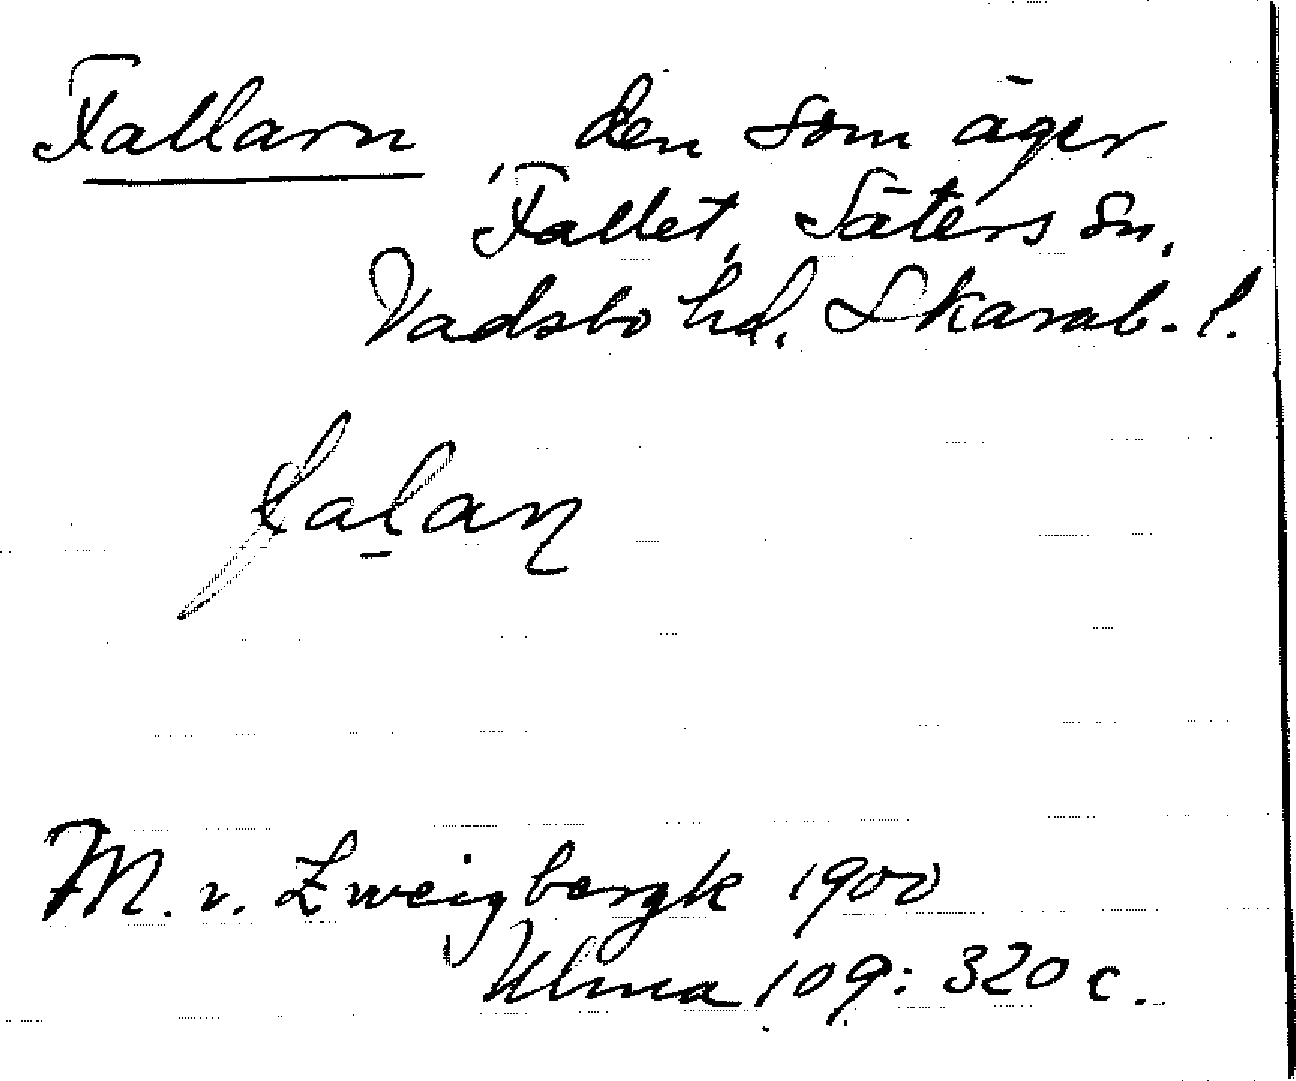 Fallarn den som äger
'Fallet, Säters sn,
Vadsbo hd. Skarab. l.
fa̱lan
M. v. Zweigbergk 1900
Ulma 109: 320 c.